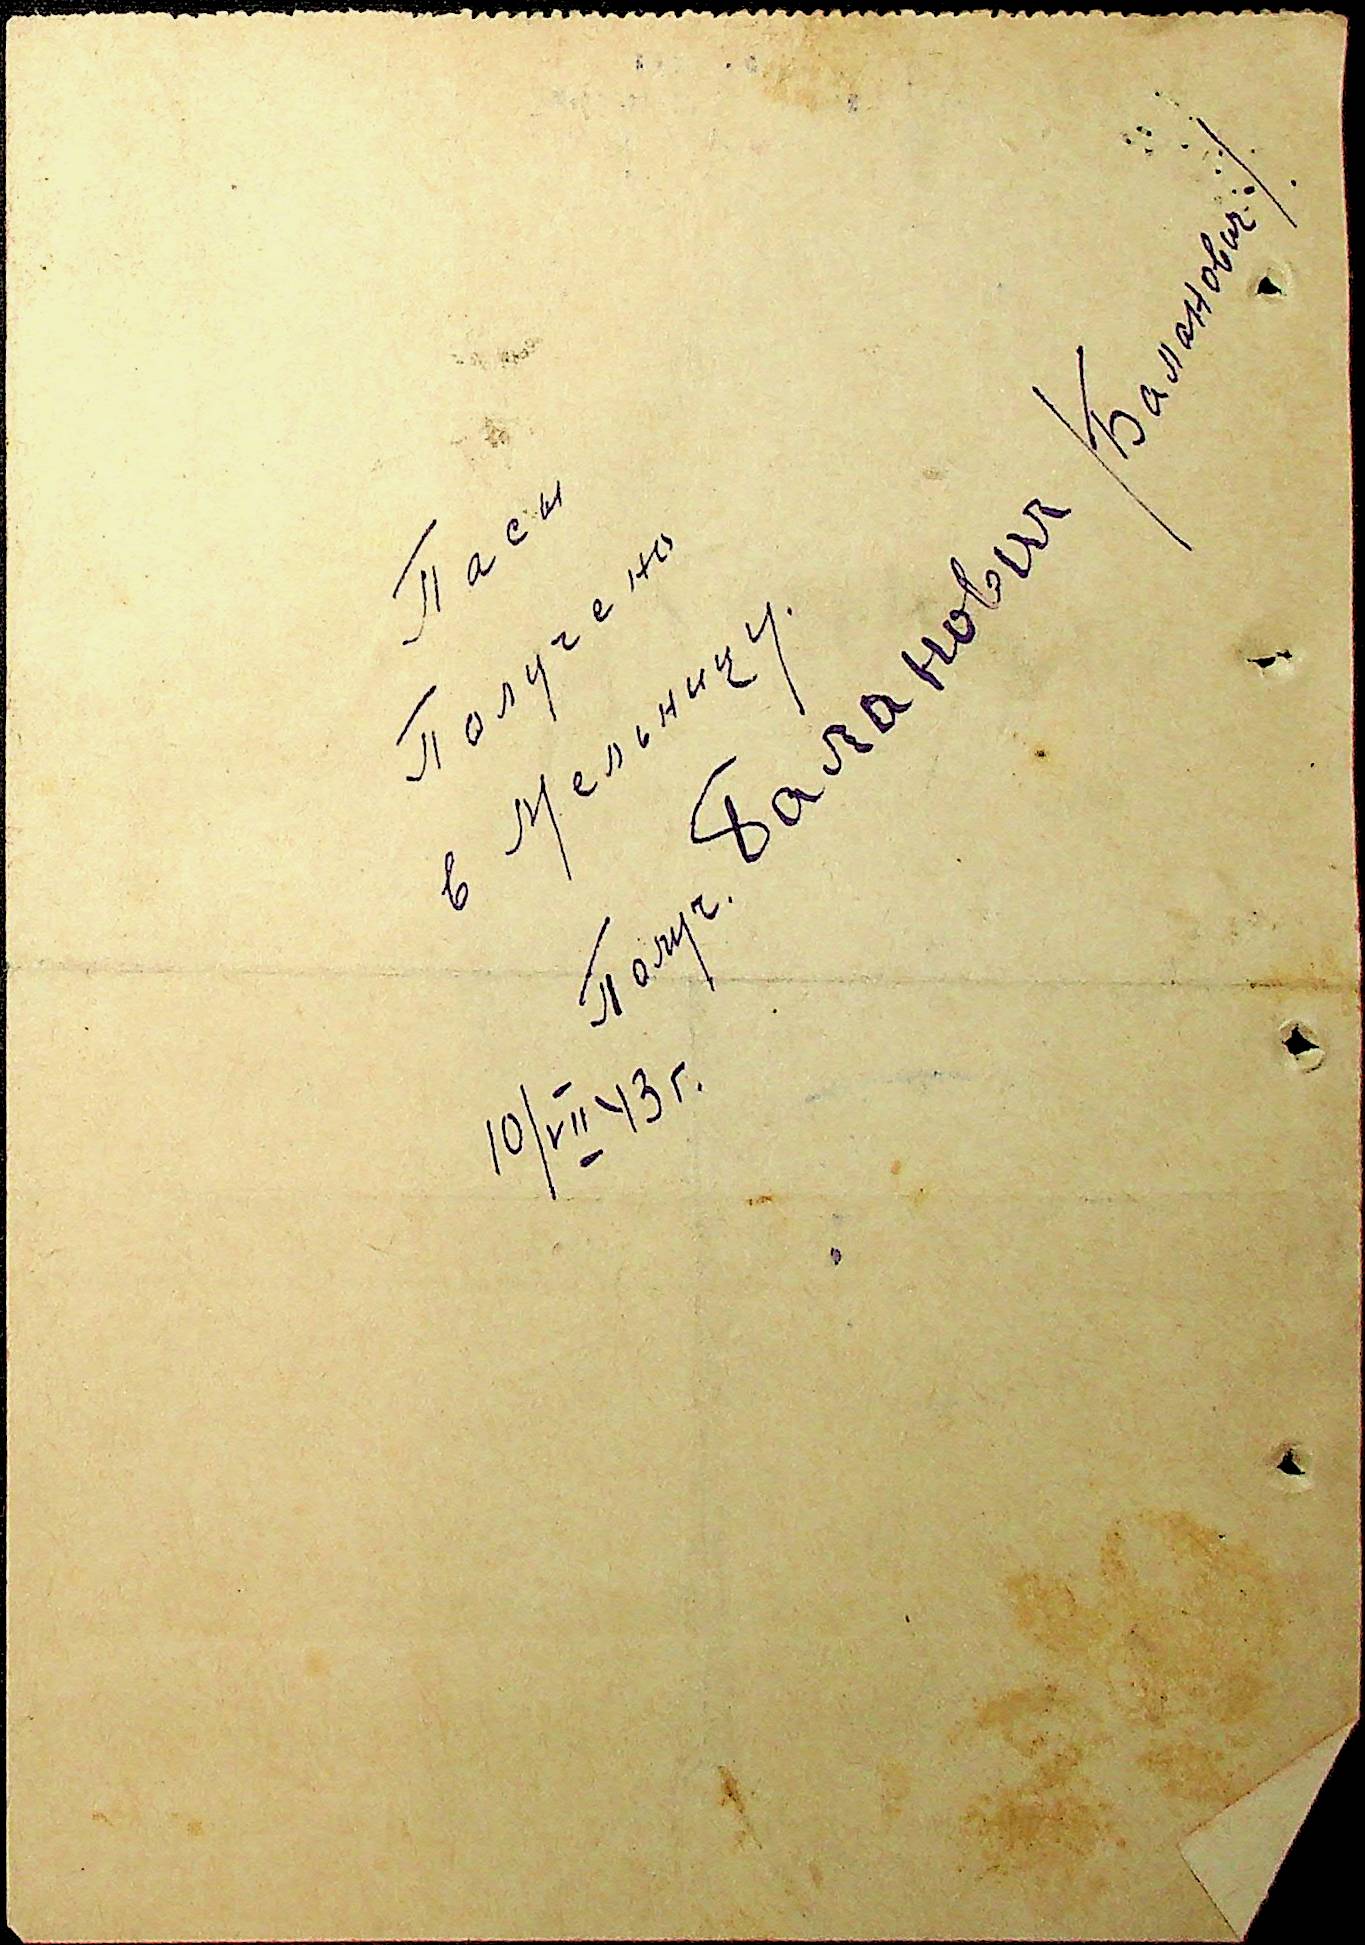 Пасы
Получено
в Мельницу.
Получ. Баланович /Баланович/.
10/VII 43 г.